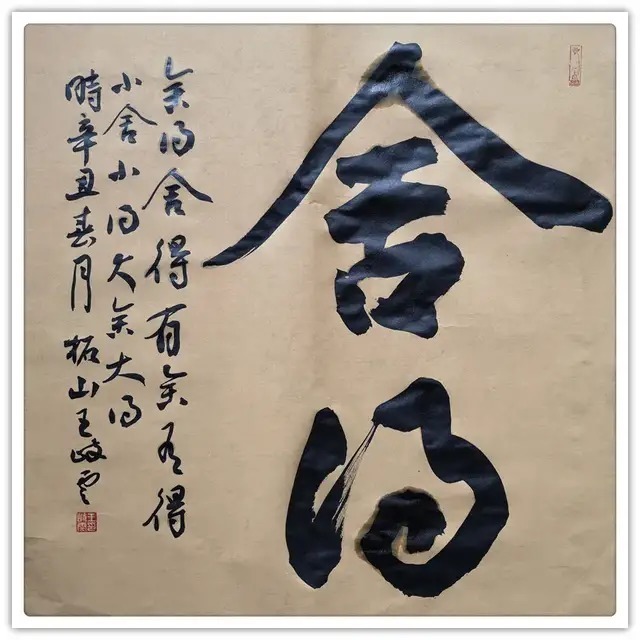 舍得
舍得舍得有舍有得
小舍小得大舍大得
時辛丑春月 柘山王